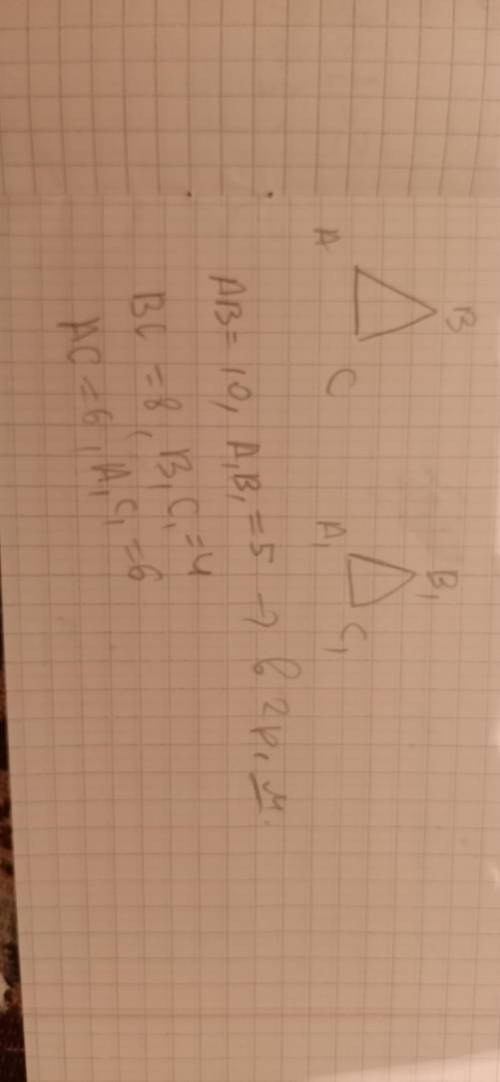 B B₁
A C A₁ C₁
AB = 10, A₁B₁ = 5 → в 2р. м.
BC = 8, B₁C₁ = 4
AC = 6, A₁C₁ = 6